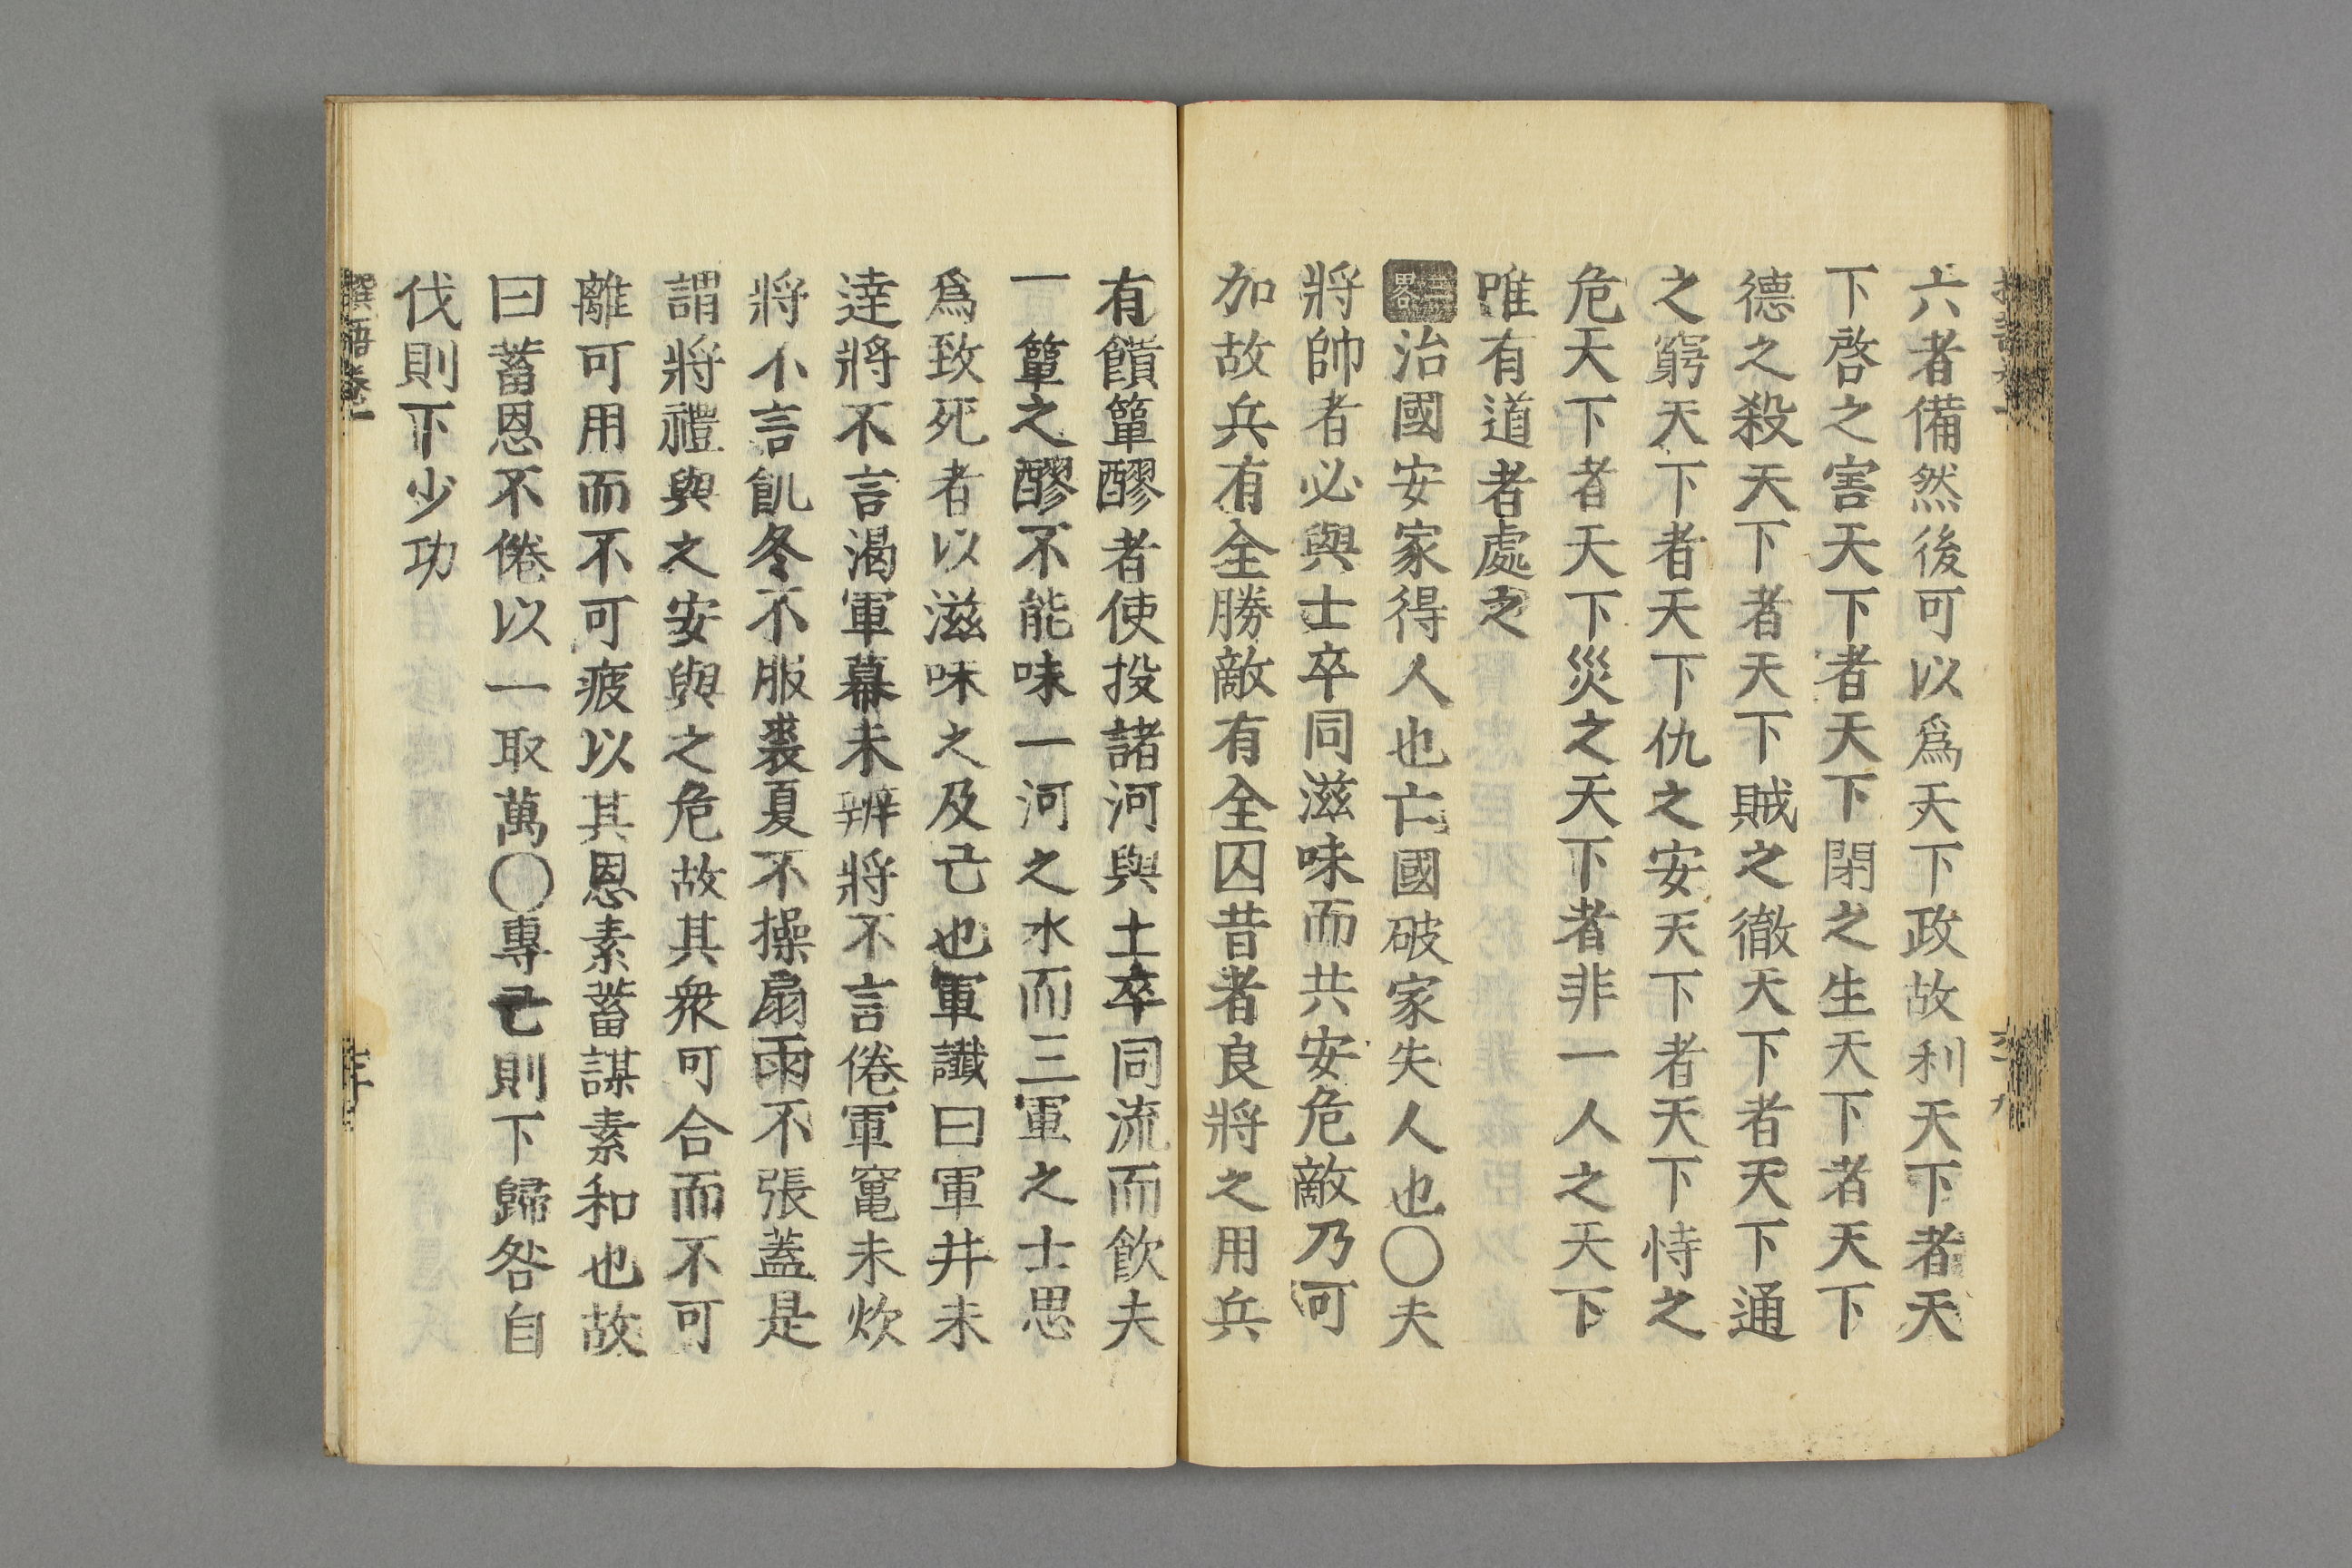 六者備然後可以爲天下政故利天下者天
下啓之害天下者天下閉之生天下者天下
德之殺天下者天下賊之徹天下者天下通
之窮天下者天下仇之安天下者天下恃之
危天下者天下災之天下者非一人之天下
唯有道者處之
三畧治國安家得人也亡國破家失人也〇夫
將帥者必與士卒同滋味而共安危敵乃可
加故兵有全勝敵有全囚昔者良將之用兵
有饋簞醪者使投諸河與士卒同流而飮夫
一簞之醪不能味一河之水而三軍之士思
爲致死者以滋味之及己也軍讖曰軍井未
達將不言渴軍幕未辨將不言倦軍竃未炊
將不言飢冬不服裘夏不操扇雨不張蓋是
謂將禮與之安與之危故其衆可合而不可
離可用而不可疲以其恩素蓄謀素和也故
曰蓄恩不倦以一取萬〇專己則下歸咎自
伐則下少功
撰語卷一
三十